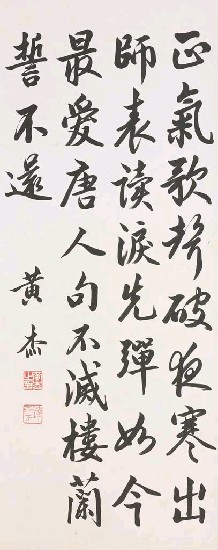 正氣歌聲破夜寒出
師表讀淚先彈如今
最愛唐人句不滅樓蘭
誓不還
黃杰